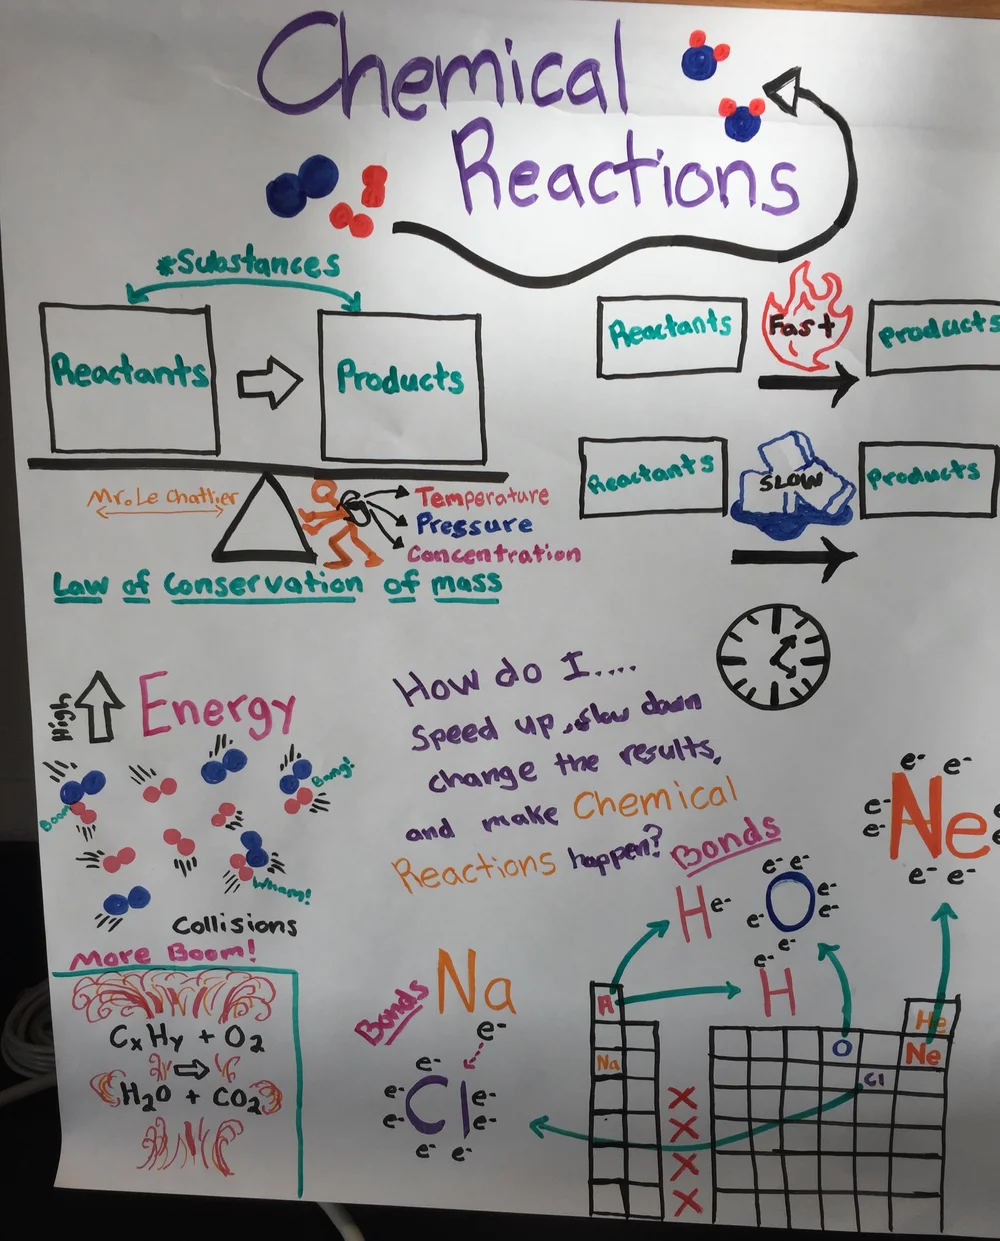 Chemical
Reactions
*Substances
Reactants
Products
Reactants
Fast
Products
Reactants
SLOW
Products
Mr. Le Chatlier
Temperature
Pressure
Concentration
Law of Conservation of mass
High
Energy
Boom
Bang!
Wham!
Collisions
More Boom!
CxHy + O2
H2O + CO2
How do I....
Speed up, slow down
change the results,
and make Chemical
Reactions happen?
Bonds
H e-
e- e-
O
e-
e-
e-
e-
e-
H
e- e-
Ne
e-
e-
e-
e- e-
Bonds
Na
e-
e-
Cl
e-
e-
e-
e-
e- e-
H
Na
O
Cl
He
Ne
X
X
X
X